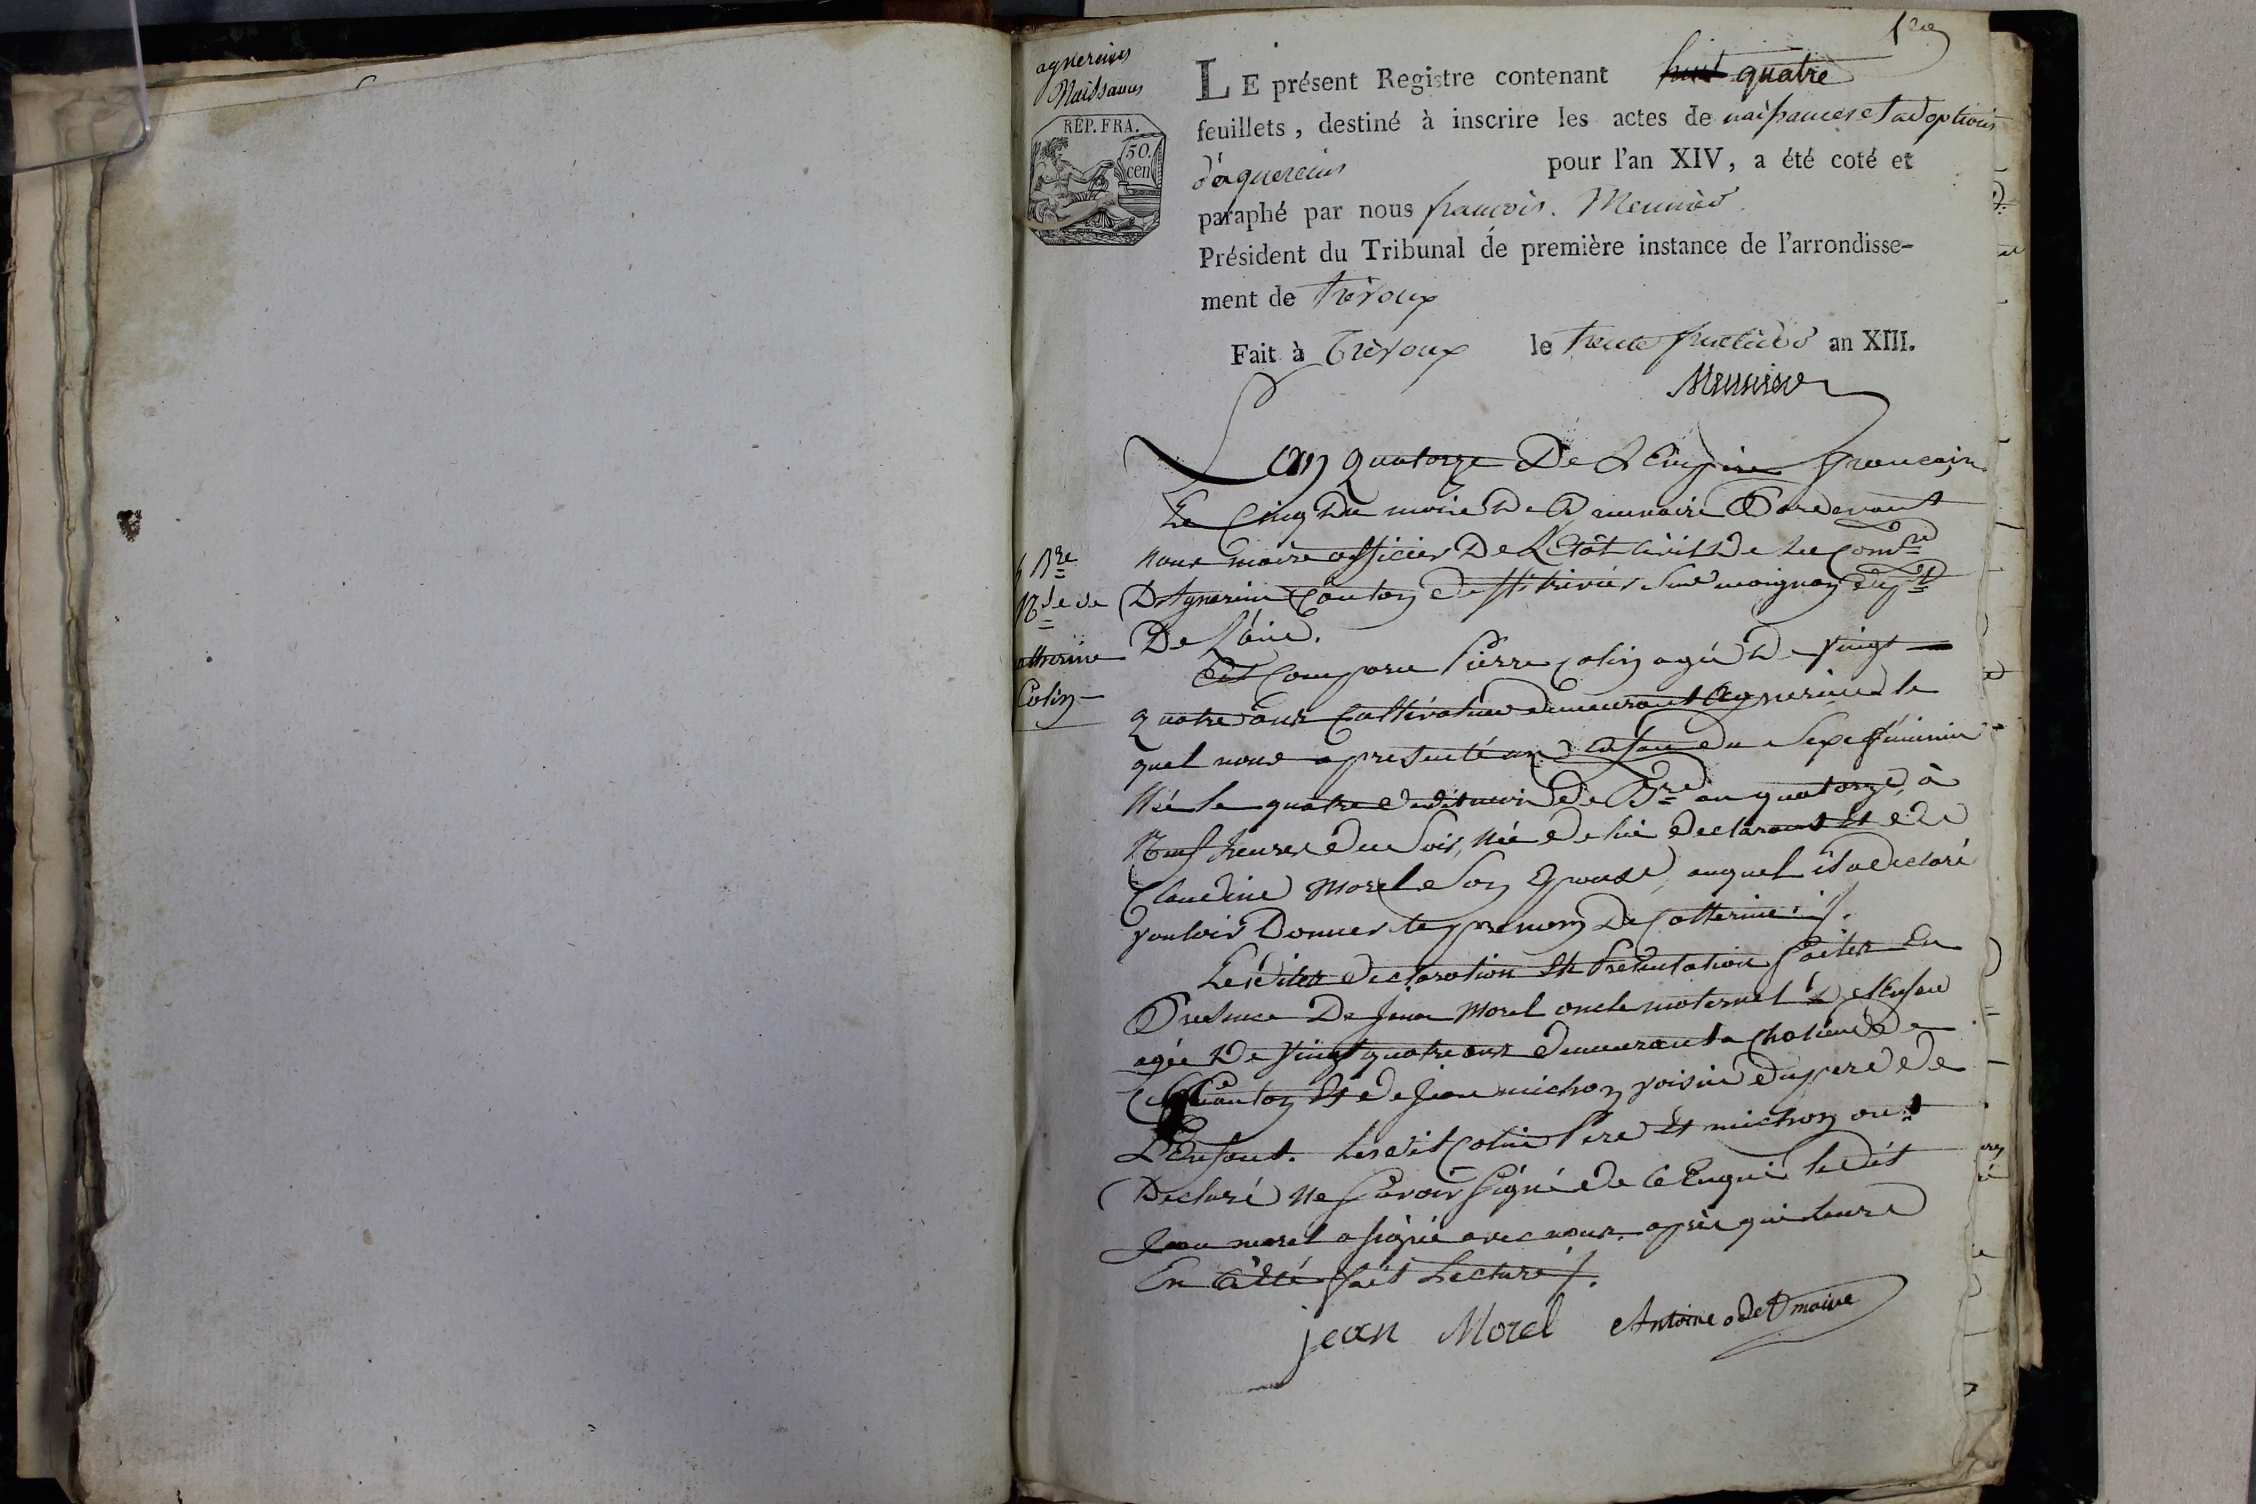 1ere
agnereins
Naissances
RÉP. FRA.
50.
cen
LE présent Registre contenant huit quatre
feuillets, destiné à inscrire les actes de naissances et adoptions
d'agnereins pour l'an XIV, a été coté et
paraphé par nous françois. Meunier
Président du Tribunal de première instance de l'arrondisse-
ment de trévoux
Fait à Trévoux le trente fructidor an XIII.
Meunier
L'an quatorze De L'Empire francois
Le Cinq du mois De Brumaire Pardevant
nous maire officier De L'Etat Civil de la Comne
D'Agnerin Canton de St trivier sur moignan Dept
De L'ain.
5 Bre
Nce de
Catherine
Colin
Est Comparu Pierre Colin agé De vingt
quatre ans Cultivateur demeurant Agnerins le
quel nous a presenté un Enfan du Sexe féminin
Née le quatre dudit mois De Bre an quatorze, à
Neuf heures du Soir, Née de lui declarant Et de
Claudine Morel Son Epouse, auquel il a declaré
vouloir Donner le prenom De Catterine ./.
Lesdites declaration Et Presentation faites En
Presence De Jean Morel oncle maternel de l'Enfan
agée De vingt quatre ans demeurant a Chaleins de
Ce Canton Et de Jean michon voisin du pere de
L'Enfant. Lesdit Colin Pere Et michon ont
Declaré Ne Savoir Signé de Ce Enquis ledit
Jean morel a signé avec nous. après qui leurs
En a été fait Lecture ./.
jean Morel Antoine odet maire